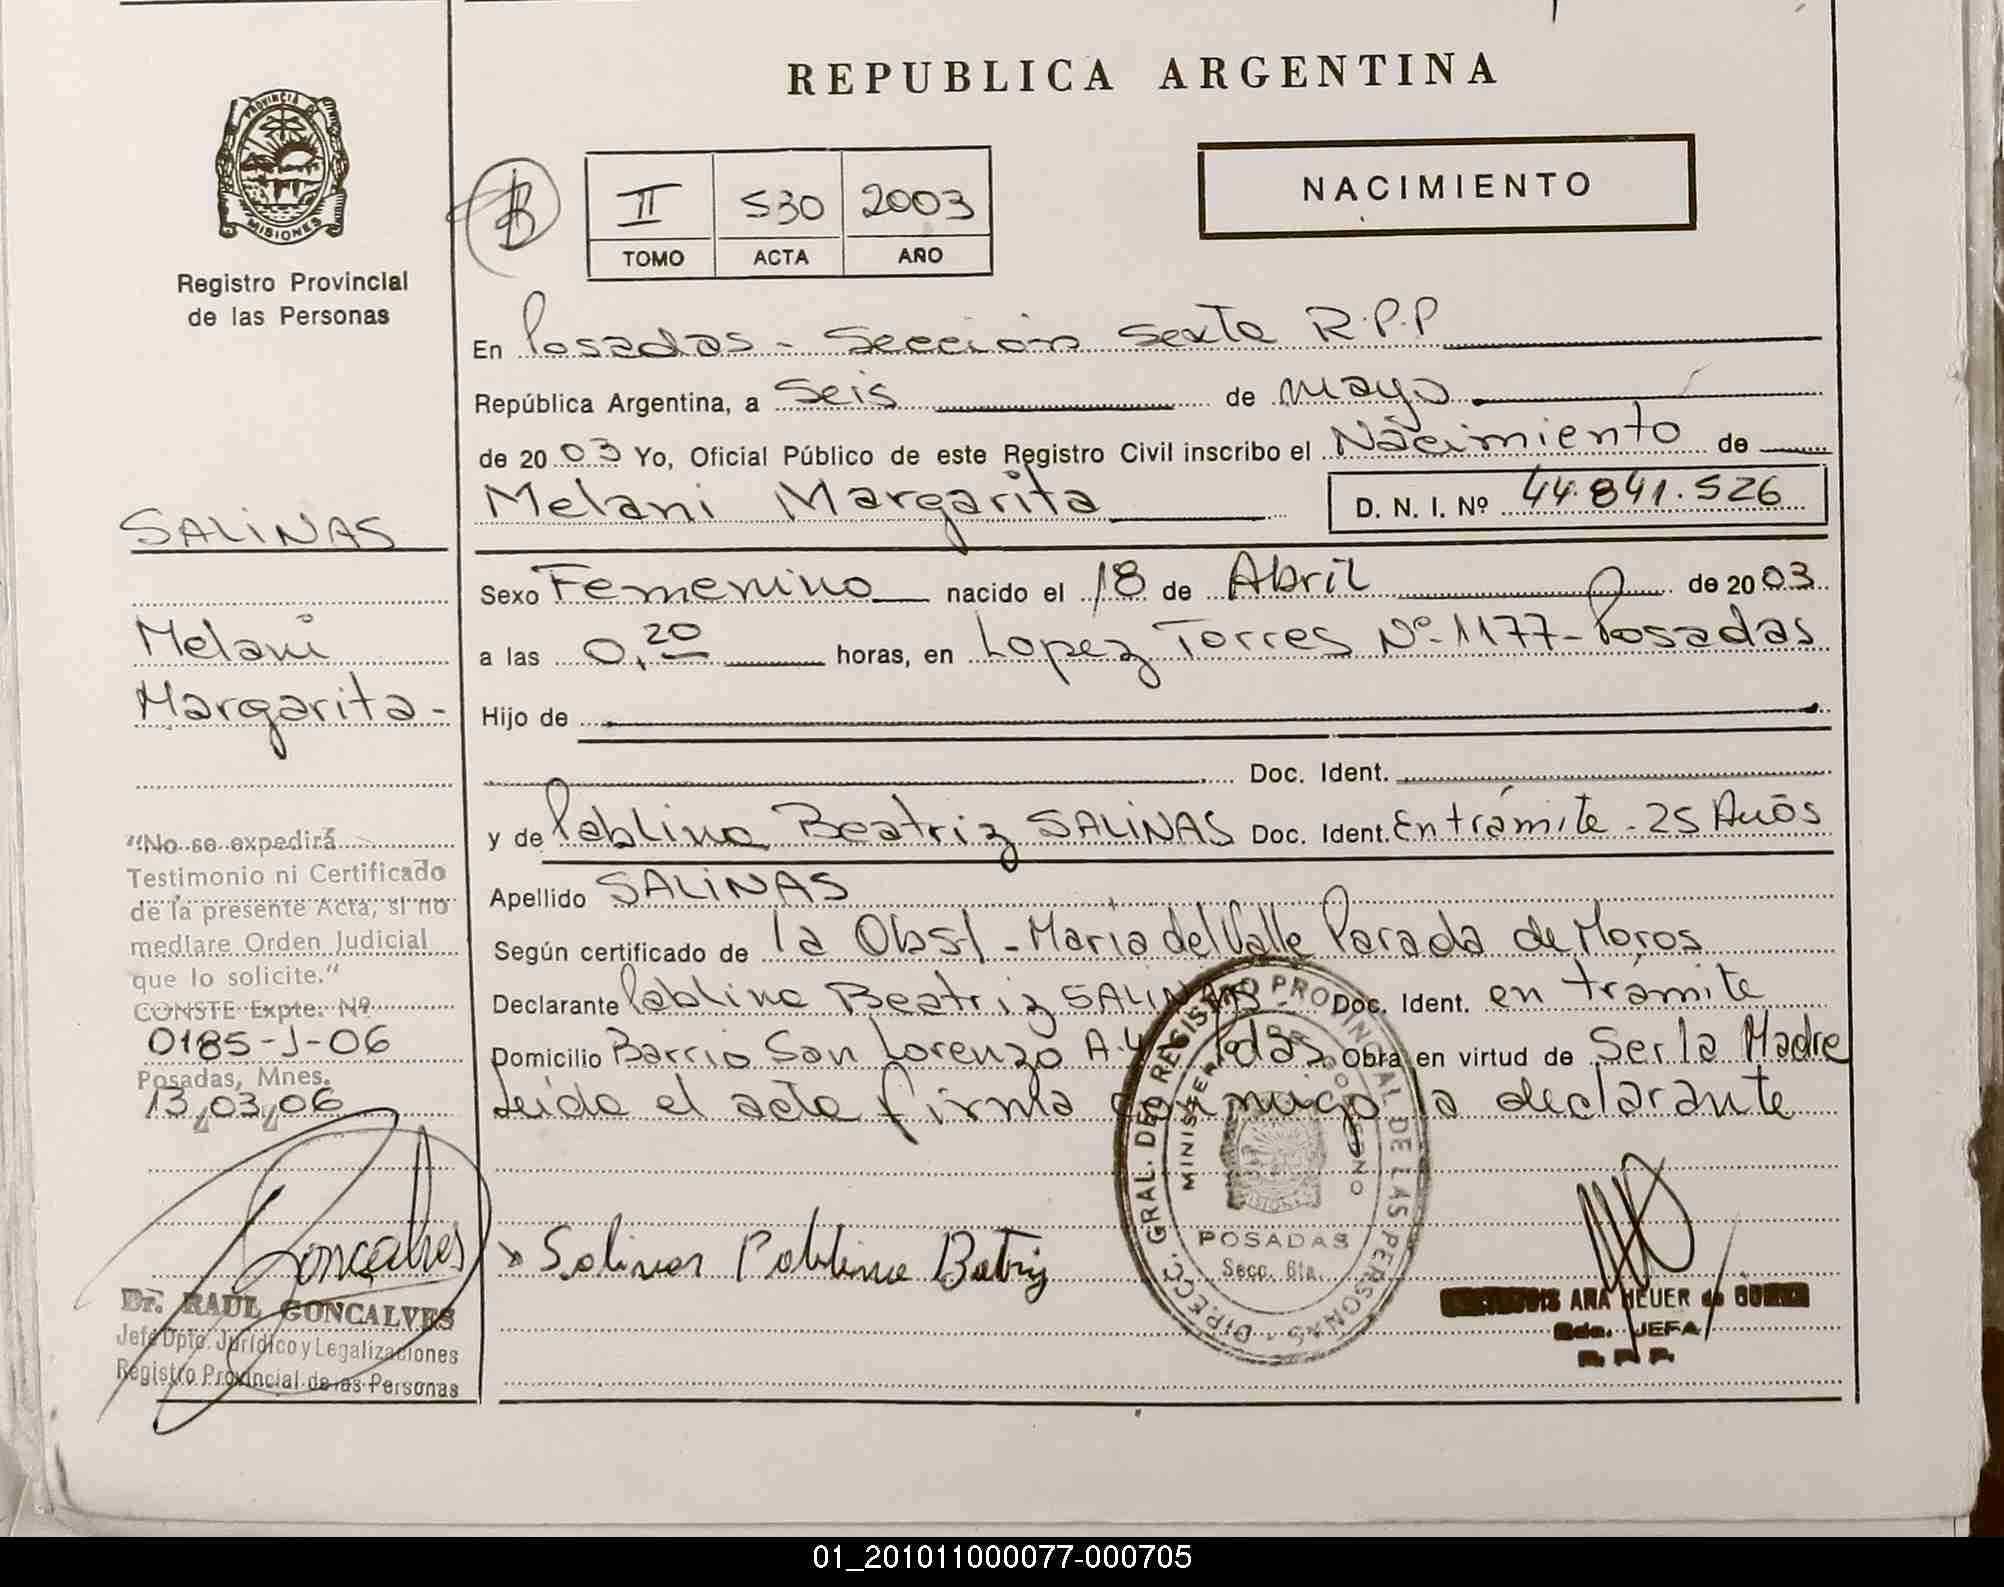 REPUBLICA ARGENTINA
PROVINCIA DE MISIONES
Registro Provincial
de las Personas
II 530 2003
TOMO ACTA AÑO
NACIMIENTO
En Posadas - Sección Sexta R.P.P
República Argentina, a Seis de mayo
de 2003 Yo, Oficial Público de este Registro Civil inscribo el Nacimiento de
Melani Margarita D. N. I. Nº 44.841.526
Sexo Femenino nacido el 18 de Abril de 2003
a las 0,20 horas, en Lopez Torres Nº 1177-Posadas
Hijo de
Doc. Ident.
y de Pablina Beatriz SALINAS Doc. Ident. En trámite - 25 Años
Apellido SALINAS
Según certificado de la Obst - Maria del Valle Parada de Moros
Declarante Pablina Beatriz SALINAS - Doc. Ident. en trámite
Domicilio Barrio San Lorenzo A-4 Pdas Obra en virtud de Ser la Madre
Leida el acta firma conmigo la declarante
Salinas Pablina Beatriz
SALINAS
Melani
Margarita -
"No se expedirá
Testimonio ni Certificado
de la presente Acta, si no
mediare Orden Judicial
que lo solicite."
CONSTE Expte. Nº
0185-J-06
Posadas, Mnes.
13,03,06
Goncalves
Dr. RAUL GONCALVES
Jefe Dpto. Jurídico y Legalizaciones
Registro Provincial de las Personas
DIREC. GRAL. DEL REGISTRO PROVINCIAL DE LAS PERSONAS
MINISTERIO DE GOBIERNO
POSADAS
Secc. 6ta.
ANA HEUER de
JEFA
R. P. P.
01_201011000077-000705